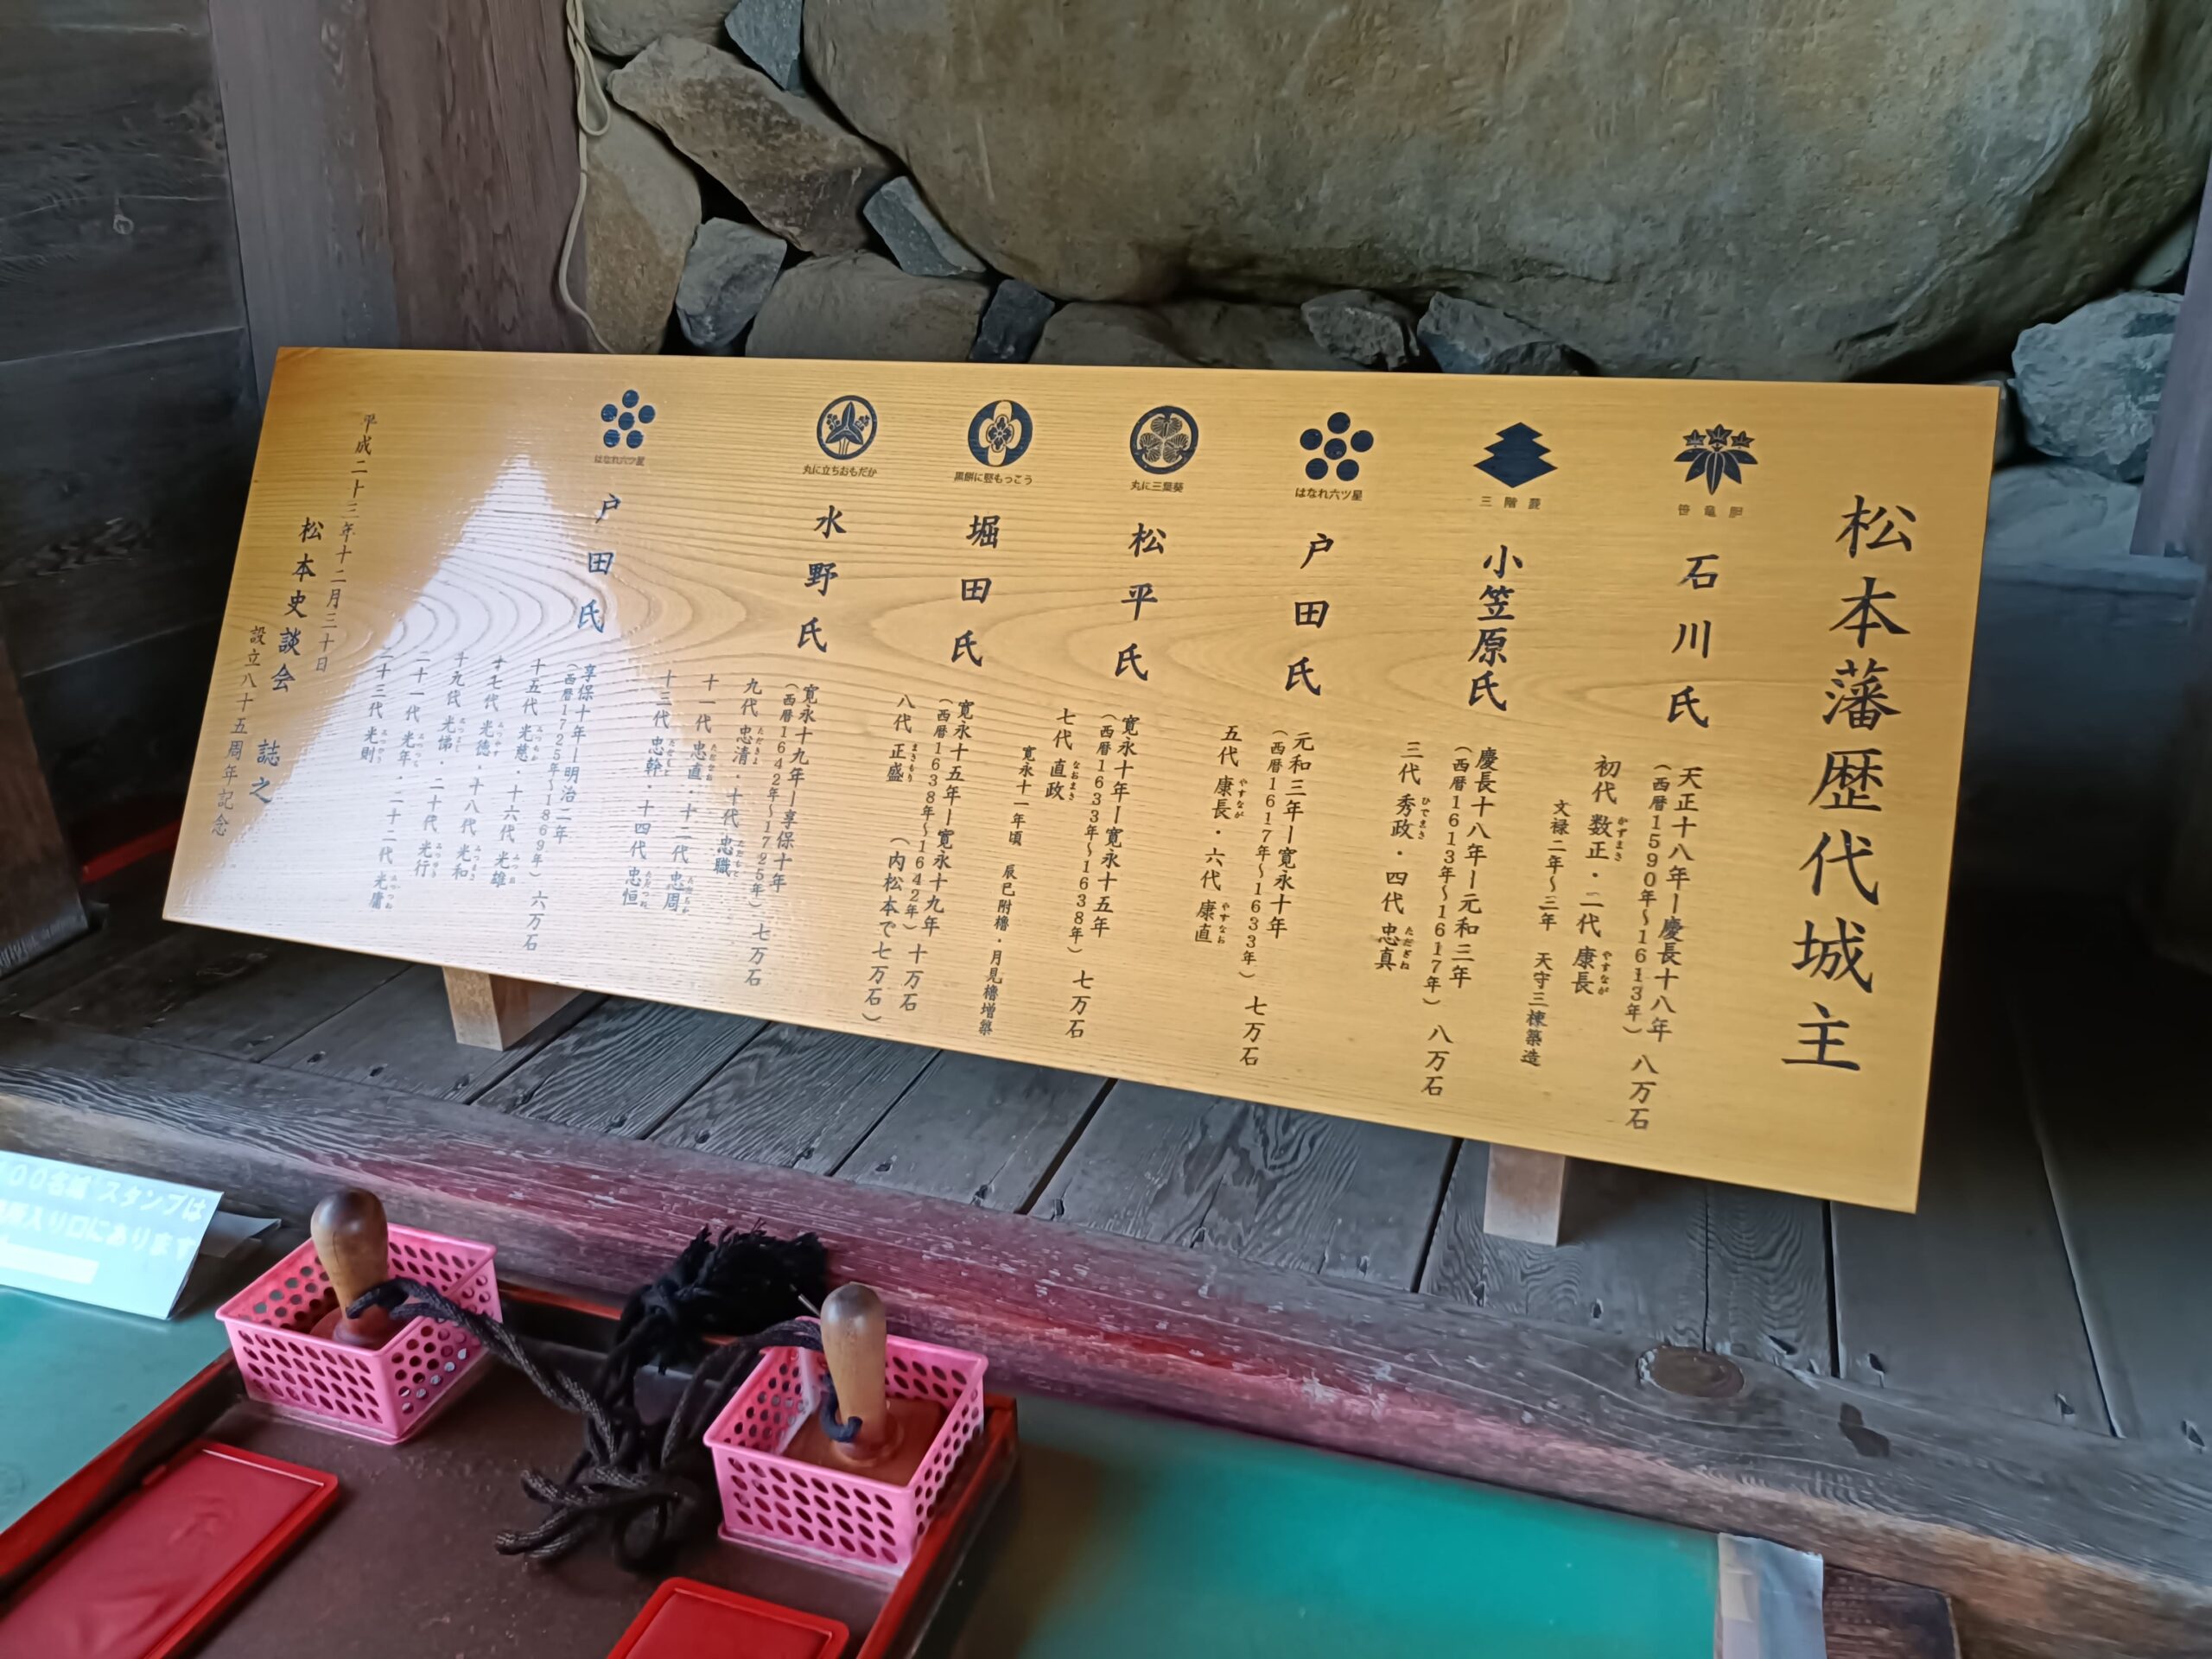 松本藩歴代城主
笹竜胆
石川氏
天正十八年ー慶長十八年
(西暦1590年〜1613年) 八万石
初代 数正・二代 康長
かずまさ やすなが
文禄二年〜三年 天守三棟築造
三階菱
小笠原氏
慶長十八年ー元和三年
(西暦1613年〜1617年) 八万石
三代 秀政・四代 忠真
ひでまさ ただざね
はなれ六ツ星
戸田氏
元和三年ー寛永十年
(西暦1617年〜1633年) 七万石
五代 康長・六代 康直
やすなが やすなお
丸に三葉葵
松平氏
寛永十年ー寛永十五年
(西暦1633年〜1638年) 七万石
七代 直政
なおまさ
寛永十一年頃 辰巳附櫓・月見櫓増築
黒餅に竪もっこう
堀田氏
寛永十五年ー寛永十九年
(西暦1638年〜1642年) 十万石
八代 正盛 (内松本で七万石)
まさもり
丸に立ちおもだか
水野氏
寛永十九年ー享保十年
(西暦1642年〜1725年) 七万石
九代 忠清・十代 忠職
ただきよ ただもと
十一代 忠直・十二代 忠周
ただなお ただちか
十三代 忠幹・十四代 忠恒
ただもと ただつね
はなれ六ツ星
戸田氏
享保十年ー明治二年
(西暦1725年〜1869年) 六万石
十五代 光慈・十六代 光雄
みつちか みつお
十七代 光徳・十八代 光和
みつやす みつまさ
十九代 光悌・二十代 光行
みつよし みつゆき
二十一代 光年・二十二代 光庸
みつつら みつつね
二十三代 光則
みつひさ
平成二十三年十二月三十日
松本史談会 誌之
設立八十五周年記念
００名城 スタンプは
入り口にあります